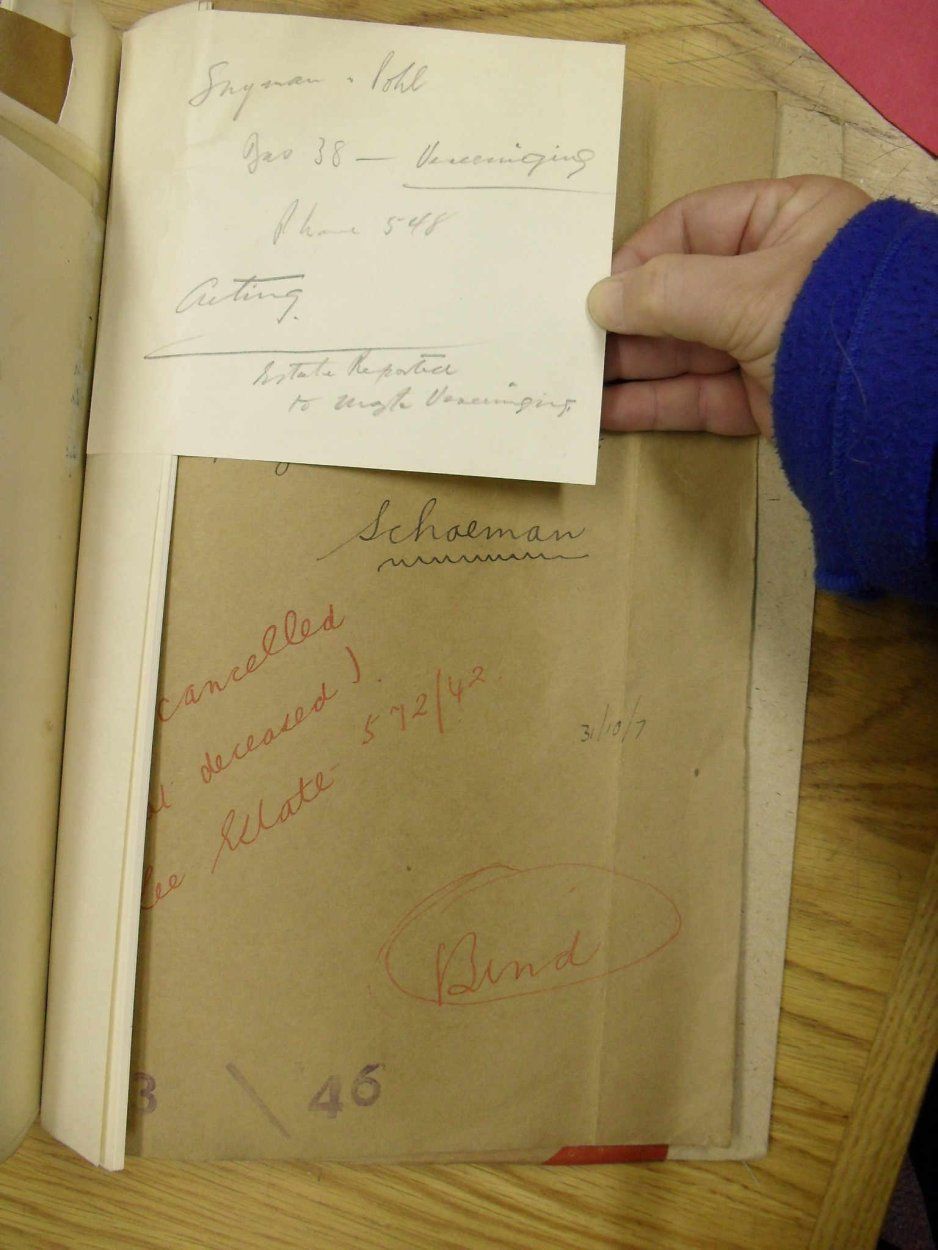 Snyman & Pohl
Box 38 — Vereeniging
Phone 548
Acting
Estate Reported
to Mag Vereeniging
Schoeman
cancelled
deceased).
See Estate 572/42
31/10/7
Bend
3 \ 46